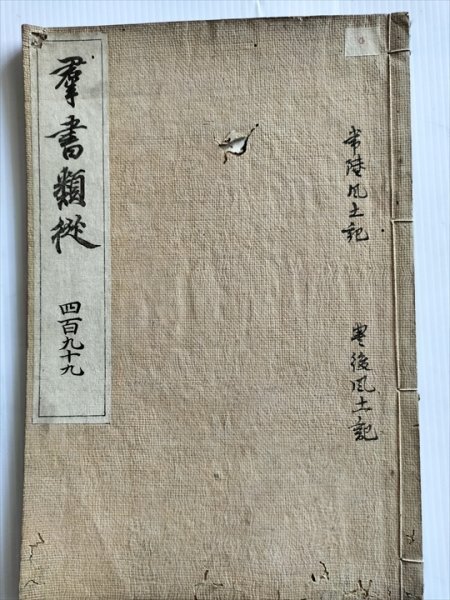 常陸風土記
豊後風土記
羣書類従
四百九十九